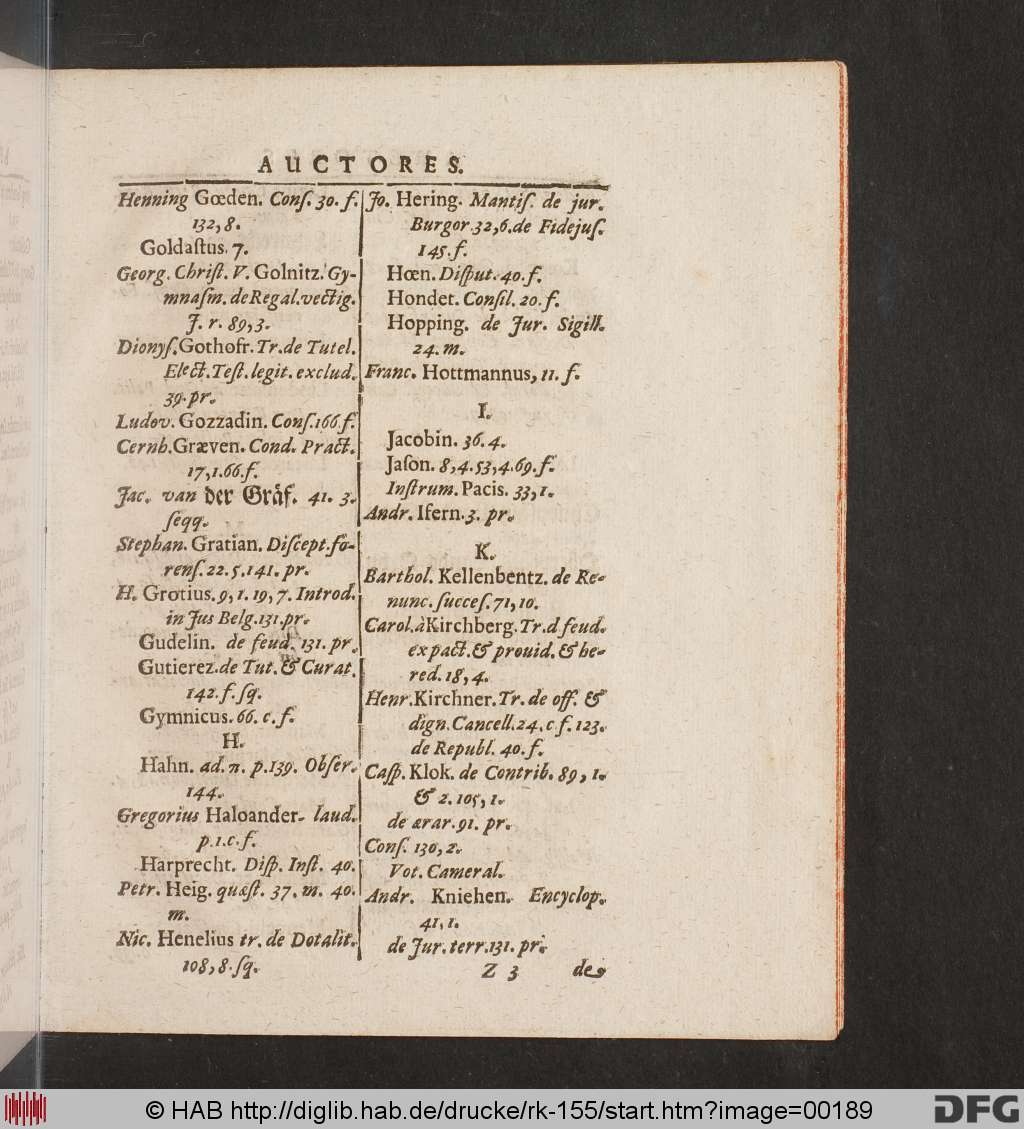 AUCTORES.
Henning Gœden. Conſ. 30. f.
132,8.
Goldaſtus. 7.
Georg. Chriſt. V. Golnitz. Gy-
mnaſm. de Regal. vectig.
J. r. 89,3.
Dionyſ. Gothofr. Tr. de Tutel.
Elect. Teſt. legit. exclud.
39. pr.
Ludov. Gozzadin. Conſ. 166 f.
Cernb. Græven. Cond. Pract.
17,1. 66. f.
Jac. van der Gräf. 41. 3.
ſeqq.
Stephan. Gratian. Diſcept. fo-
renſ. 22. 5. 141. pr.
H. Grotius. 9,1. 19,7. Introd.
in Jus Belg. 131. pr.
Gudelin. de feud. 131. pr.
Gutierez. de Tut. & Curat.
142. f. ſq.
Gymnicus. 66. c. f.
H.
Hahn. ad. π. p. 139. Obſer.
144.
Gregorius Haloander. laud.
p. 1. c. f.
Harprecht. Diſp. Inſt. 40.
Petr. Heig. quæſt. 37. m. 40.
m.
Nic. Henelius tr. de Dotalit.
108,8. ſq.
Jo. Hering. Mantiſ. de jur.
Burgor. 32,6. de Fidejuſ.
145. f.
Hœn. Diſput. 40. f.
Hondet. Conſil. 20. f.
Hopping. de Jur. Sigill.
24. m.
Franc. Hottmannus, 11. f.
I.
Jacobin. 36. 4.
Jaſon. 8,4. 53,4. 69. f.
Inſtrum. Pacis. 33,1.
Andr. Iſern. 3. pr.
K.
Barthol. Kellenbentz. de Re-
nunc. ſucceſ. 71,10.
Carol. à Kirchberg. Tr. d feud.
ex pact. & prouid. & he-
red. 18,4.
Henr. Kirchner. Tr. de off. &
dign. Cancell. 24. c f. 123.
de Republ. 40. f.
Caſp. Klok. de Contrib. 89, 1.
& 2. 105, 1.
de ærar. 91. pr.
Conſ. 130, 2.
Vot. Cameral.
Andr. Kniehen. Encyclop.
41, 1.
de Jur. terr. 131. pr.
Z 3 de
© HAB http://diglib.hab.de/drucke/rk-155/start.htm?image=00189
DFG